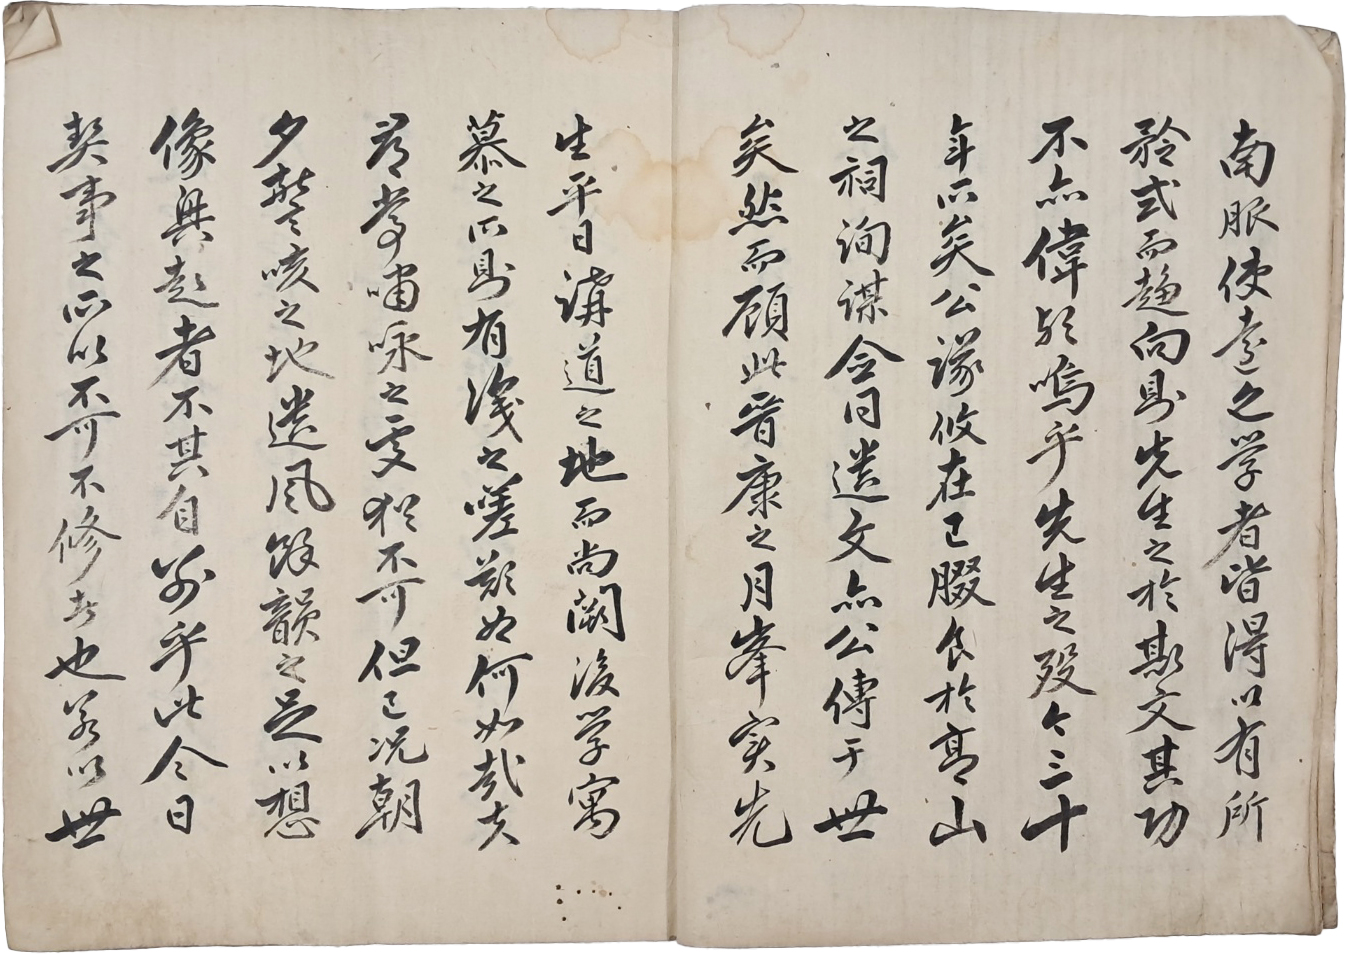 南服使遠之学者皆得以有所
矜式而趍向則先生之於斯文其功
不亦偉歟嗚乎先生之殁今三十
年所矣公議攸在已腏食於亭山
之祠詢謀僉同遺文亦公傳于世
矣然而顧此晋康之月峯实先
生平日講道之地而尚闕後学寓
慕之所則有識之嗟歎如何如哉夫
尋常嘯咏之處猶不可但已况朝
夕謦咳之地遺風餘韻之足以想
像興起者不其自別乎此今日
契事之所以不可不修者也若以世